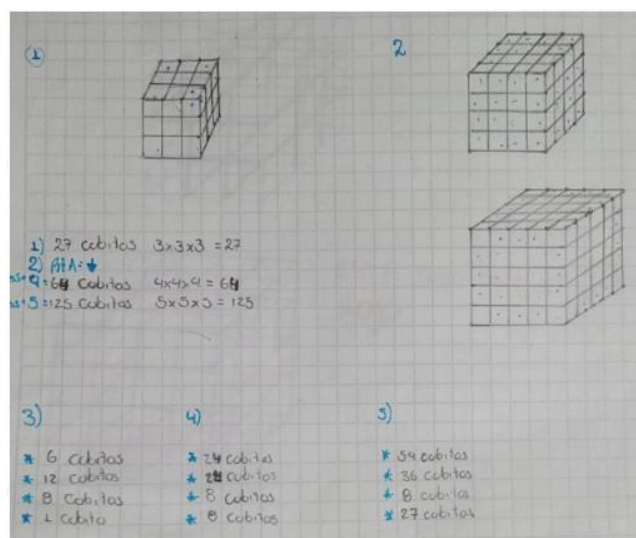 1
2
1) 27 cubitos 3x3x3 = 27
2) A:A:
4 = 64 Cubitos 4x4x4 = 64
5 = 125 Cubitos 5x5x5 = 125
3) 4) 5)
* 6 cubitos * 24 cubitos * 54 cubitos
* 12 cubitos * 24 cubitos * 36 cubitos
* 8 Cubitos * 8 cubitos * 8 cubitos
* 1 cubito * 8 cubitos * 27 cubitos